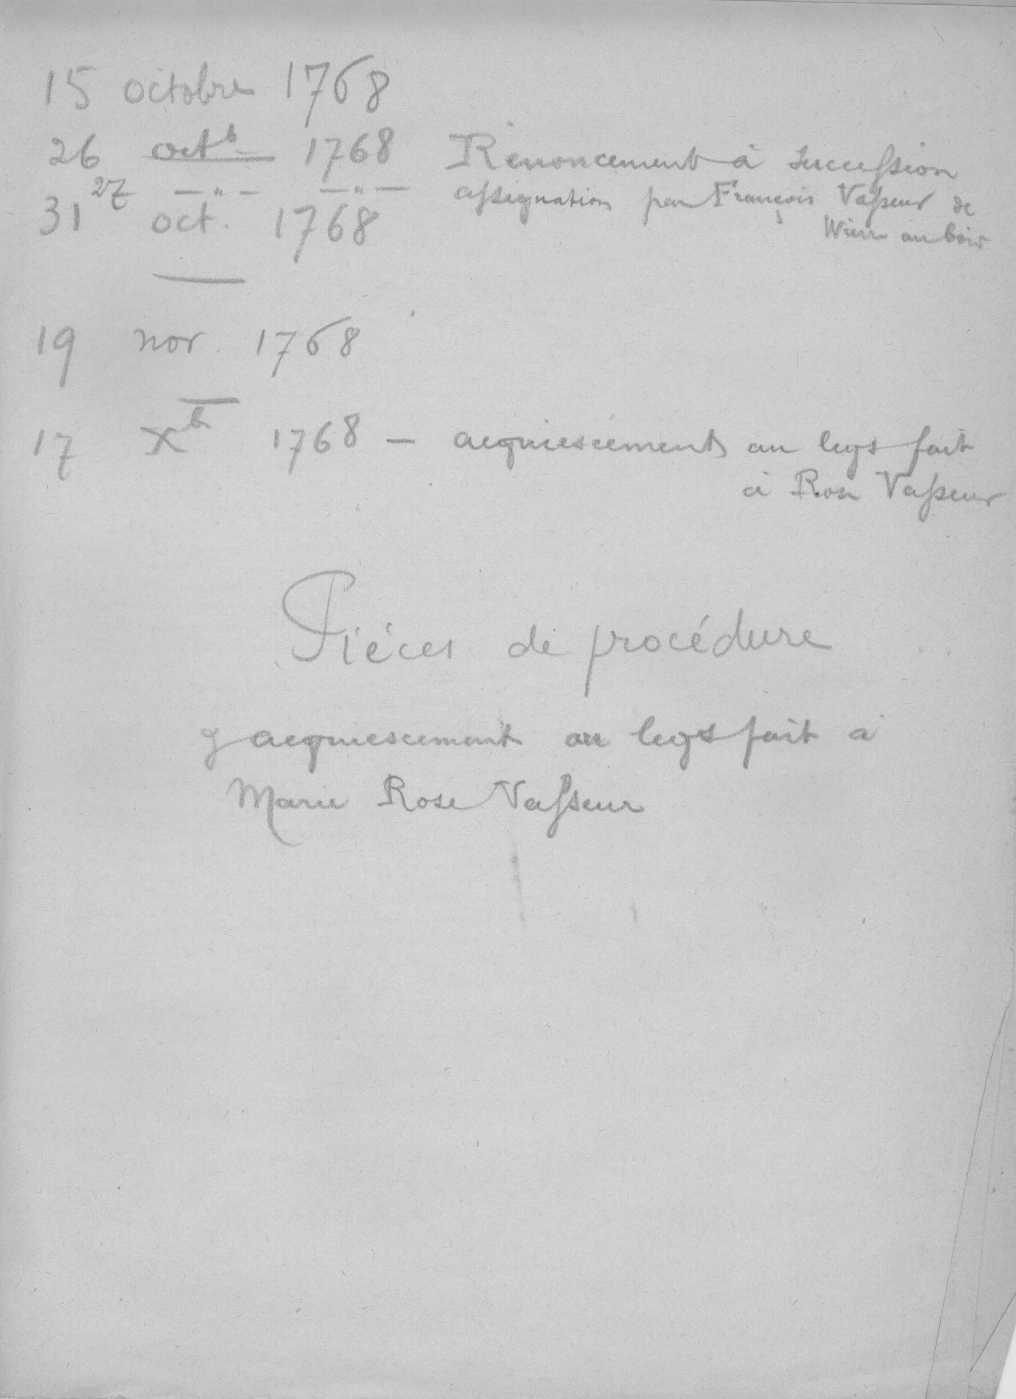 15 octobre 1768
26 oct^b 1768 Renoncement à succession
27 — " — — " — assignation par François Vasseur de
31 oct. 1768 Wierre au bois
19 nov. 1768
17 X^b 1768 — acquiescement au legs fait
à Rose Vasseur
Pièces de procédure
acquiescement au legs fait à
Marie Rose Vasseur